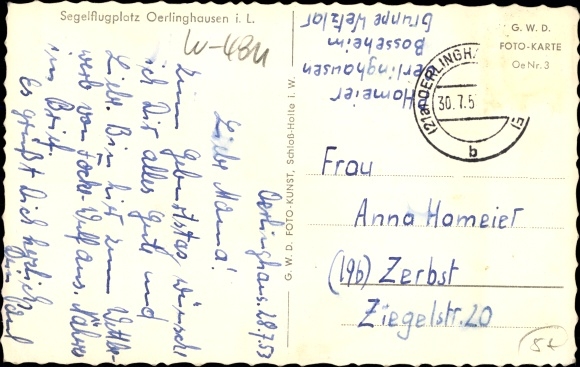 Segelflugplatz Oerlinghausen i. L.
W-4811
Oerlinghaus. 28.7.53
Liebe Mama!
Zum Geburtstag wünsche
ich Dir alles Gute und
Liebe. Bin hier zum Wettbe-
werb von Focke-Wulf aus. Näheres
im Brief.
Es grüßt Dich herzlich
Dein Paul
G. W. D. FOTO-KUNST, Schloß-Holte i. W.
Homeier
Oerlinghausen
Bosseheim
Gruppe Wetzlar
G. W. D.
FOTO-KARTE
Oe Nr. 3
(21a) OERLINGH
30.7.5
b
Frau
Anna Homeier
(19b) Zerbst
Ziegelstr. 20